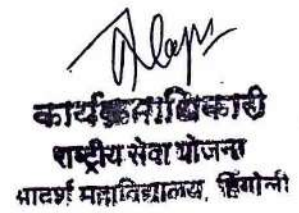 कार्यक्रमाधिकारी
राष्ट्रीय सेवा योजना
आदर्श महाविद्यालय, हिंगोली